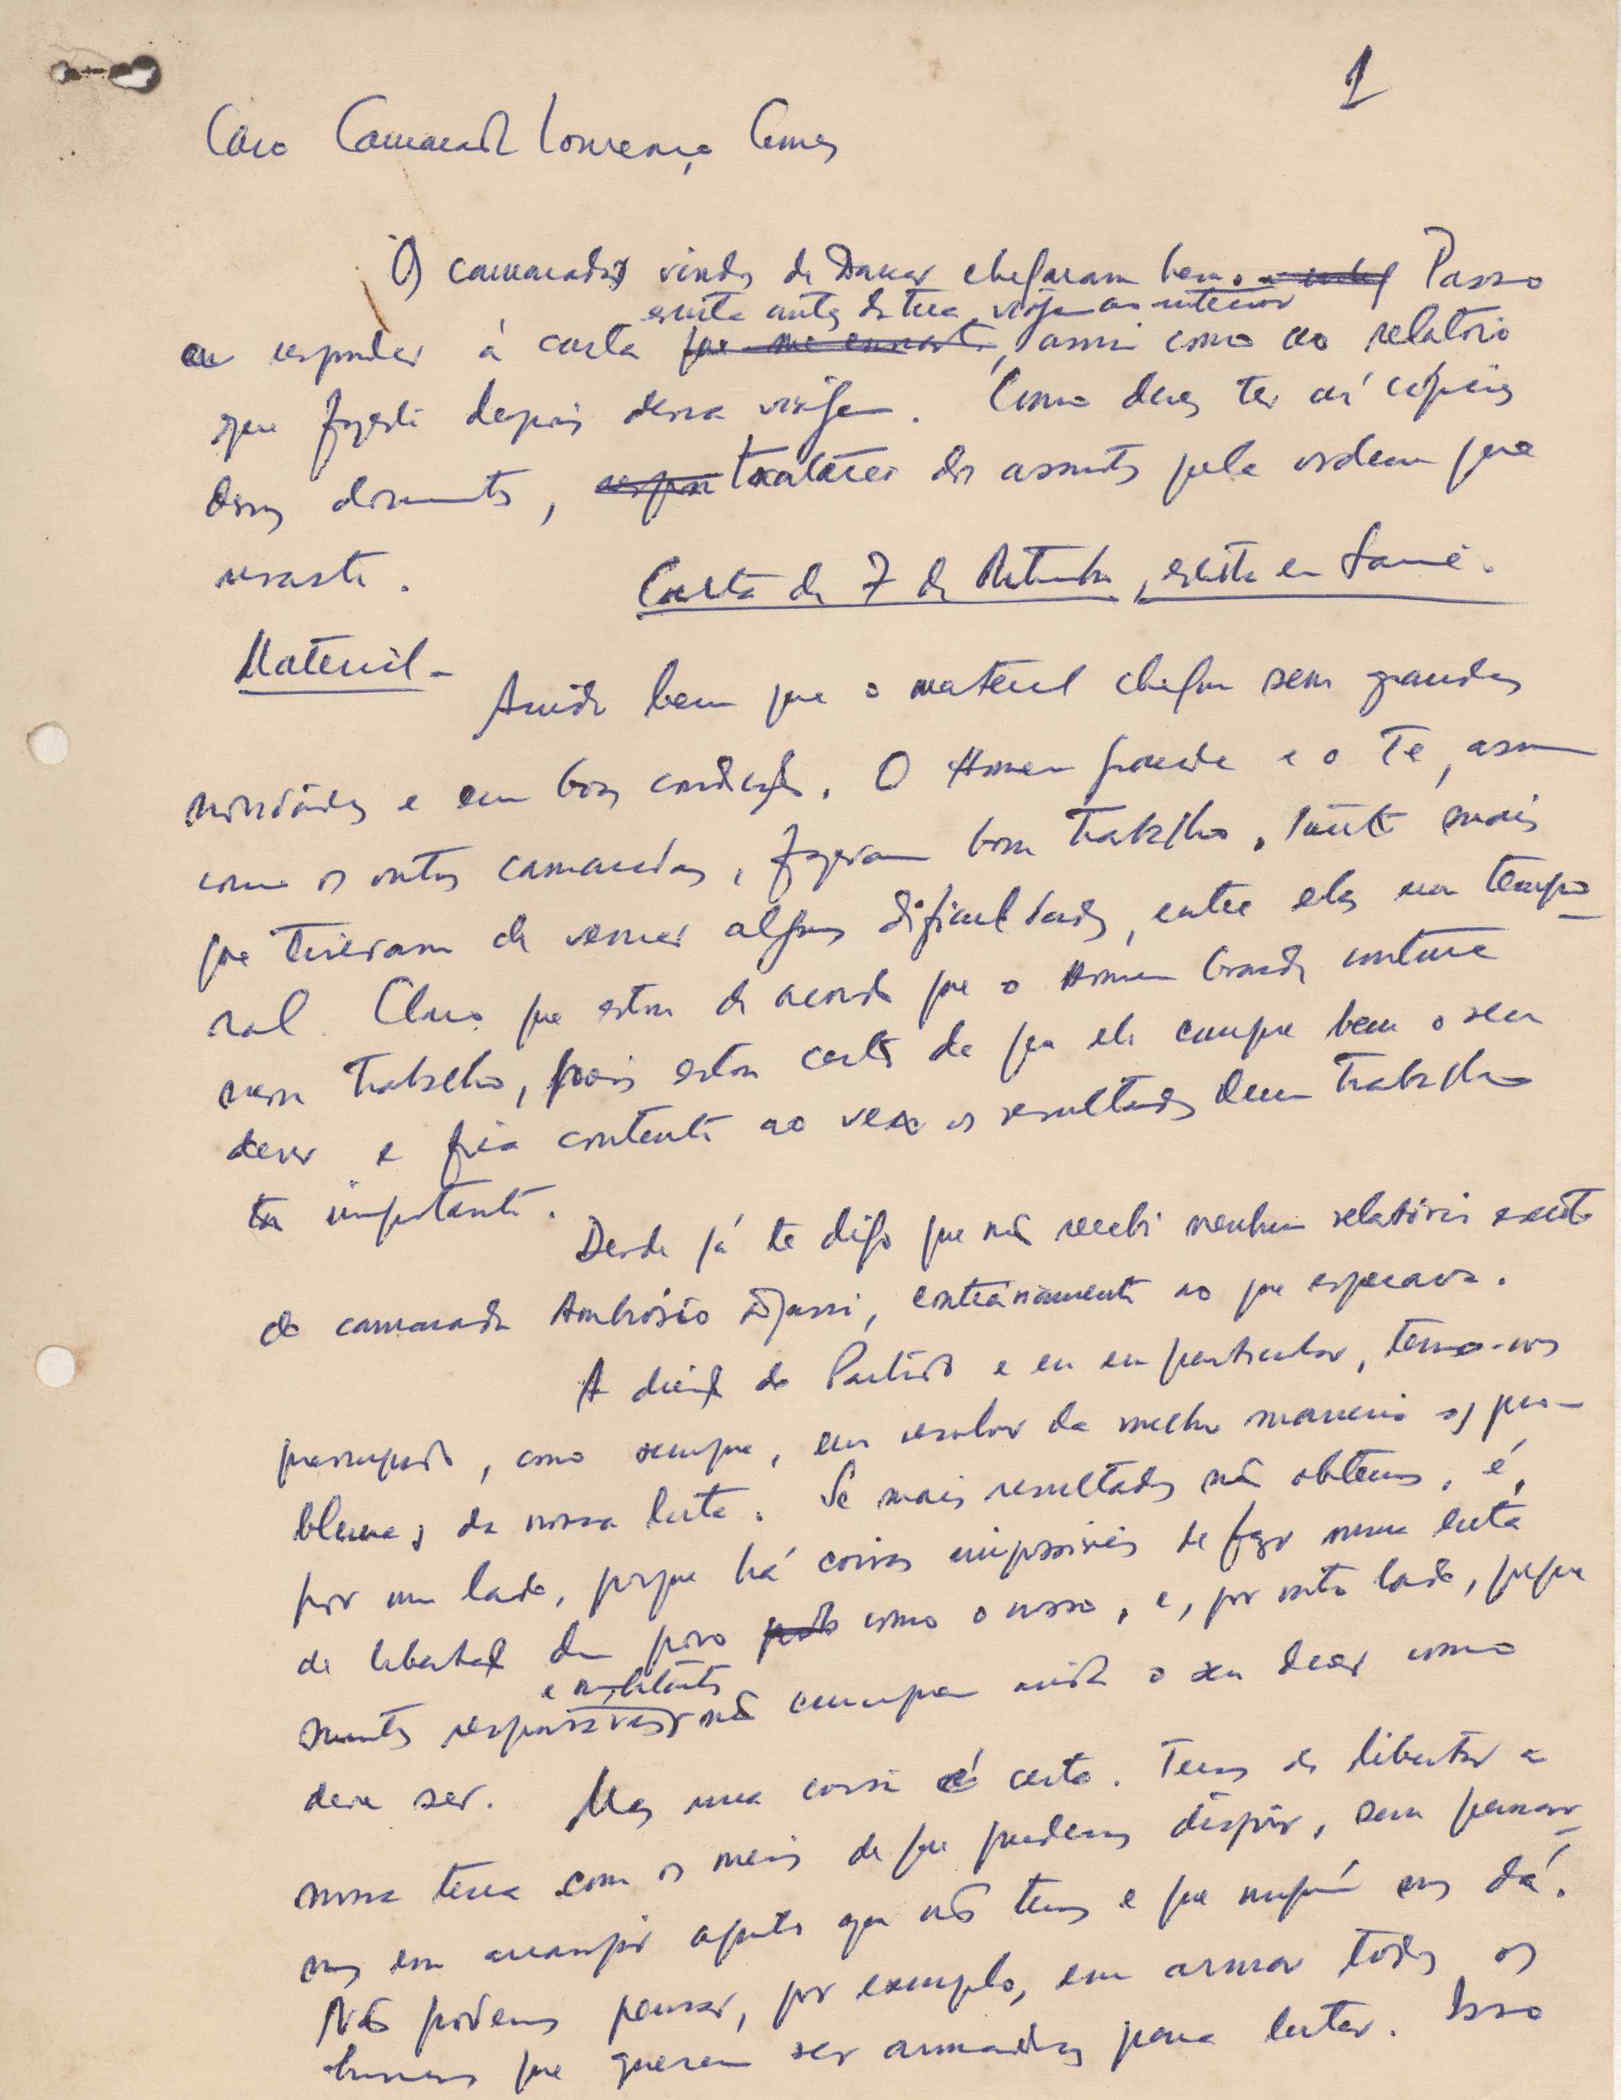 1
Caro Camarada Lourenço Gomes
Os camaradas vindos de Dakar chegaram bem. Passo
escrita antes da tua viagem ao interior
a responder à carta que me enviaste, assim como ao relatório
que fizeste depois dessa viagem. Como deves ter aí cópias
desses documentos, tratarei dos assuntos pela ordem que
usaste.
Carta de 7 de Setembro, escrita em Samé.
Material -
Ainda bem que o material chegou sem grandes
novidades e em boas condições. O Homem Grande e o Té, assim
como os outros camaradas, fizeram bom trabalho, tanto mais
que tiveram de vencer algumas dificuldades, entre elas um tempo-
ral. Claro que estou de acordo que o Homem Grande continue
nesse trabalho, pois estou certo de que ele cumpre bem o seu
dever e fica contente ao ver os resultados dum trabalho
tão importante.
Desde já te digo que não recebi nenhum relatório escrito
do camarada Ambrósio Djassi, contrariamente ao que esperava.
A direcção do Partido e eu em particular, temo-nos
preocupado, como sempre, em resolver da melhor maneira os pro-
blemas da nossa luta. Se mais resultados não obtemos, é,
por um lado, porque há coisas impossíveis de fazer numa luta
de libertação dum povo como o nosso, e, por outro lado, porque
e militantes
muitos responsáveis não cumprem ainda o seu dever como
deve ser. Mas uma coisa é certa. Temos de libertar a
nossa terra com os meios de que pudermos dispor, sem pensar-
mos em arranjar aquilo que não temos e que ninguém nos dá.
Não podemos pensar, por exemplo, em armar todos os
homens que querem ser armados para lutar. Isso